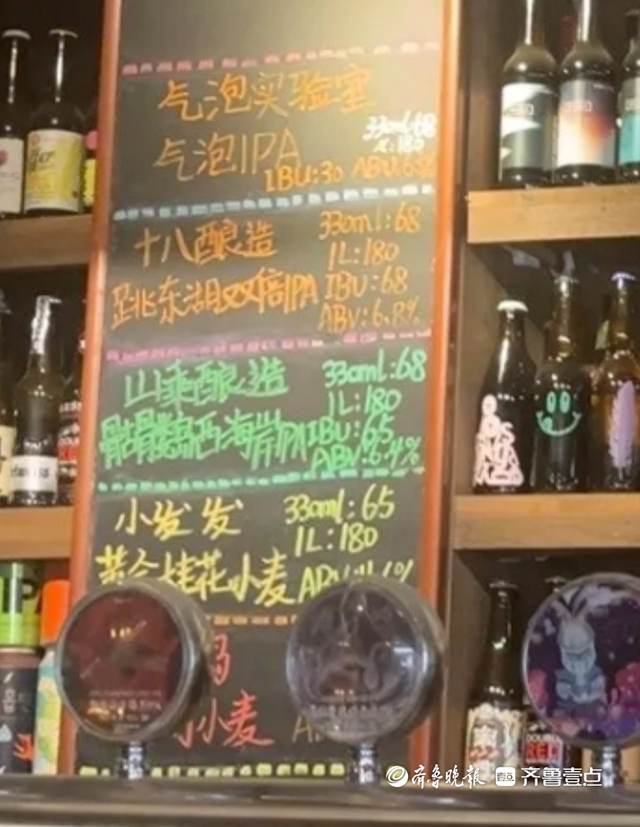 气泡实验室
气泡IPA 330ml:68
1L:180
IBU:30 ABV:6.8%
十八酿造 330ml:68
1L:180
跳东湖双倍IPA IBU:68
ABV:6.8%
山乘酿造 330ml:68
1L:180
骷髅鹦西海岸IPA IBU:65
ABV:6.4%
小发发 330ml:65
1L:180
黄金桂花小麦 ABV:4.6%
小麦
齐鲁晚报 齐鲁壹点
DOUBLE
RED